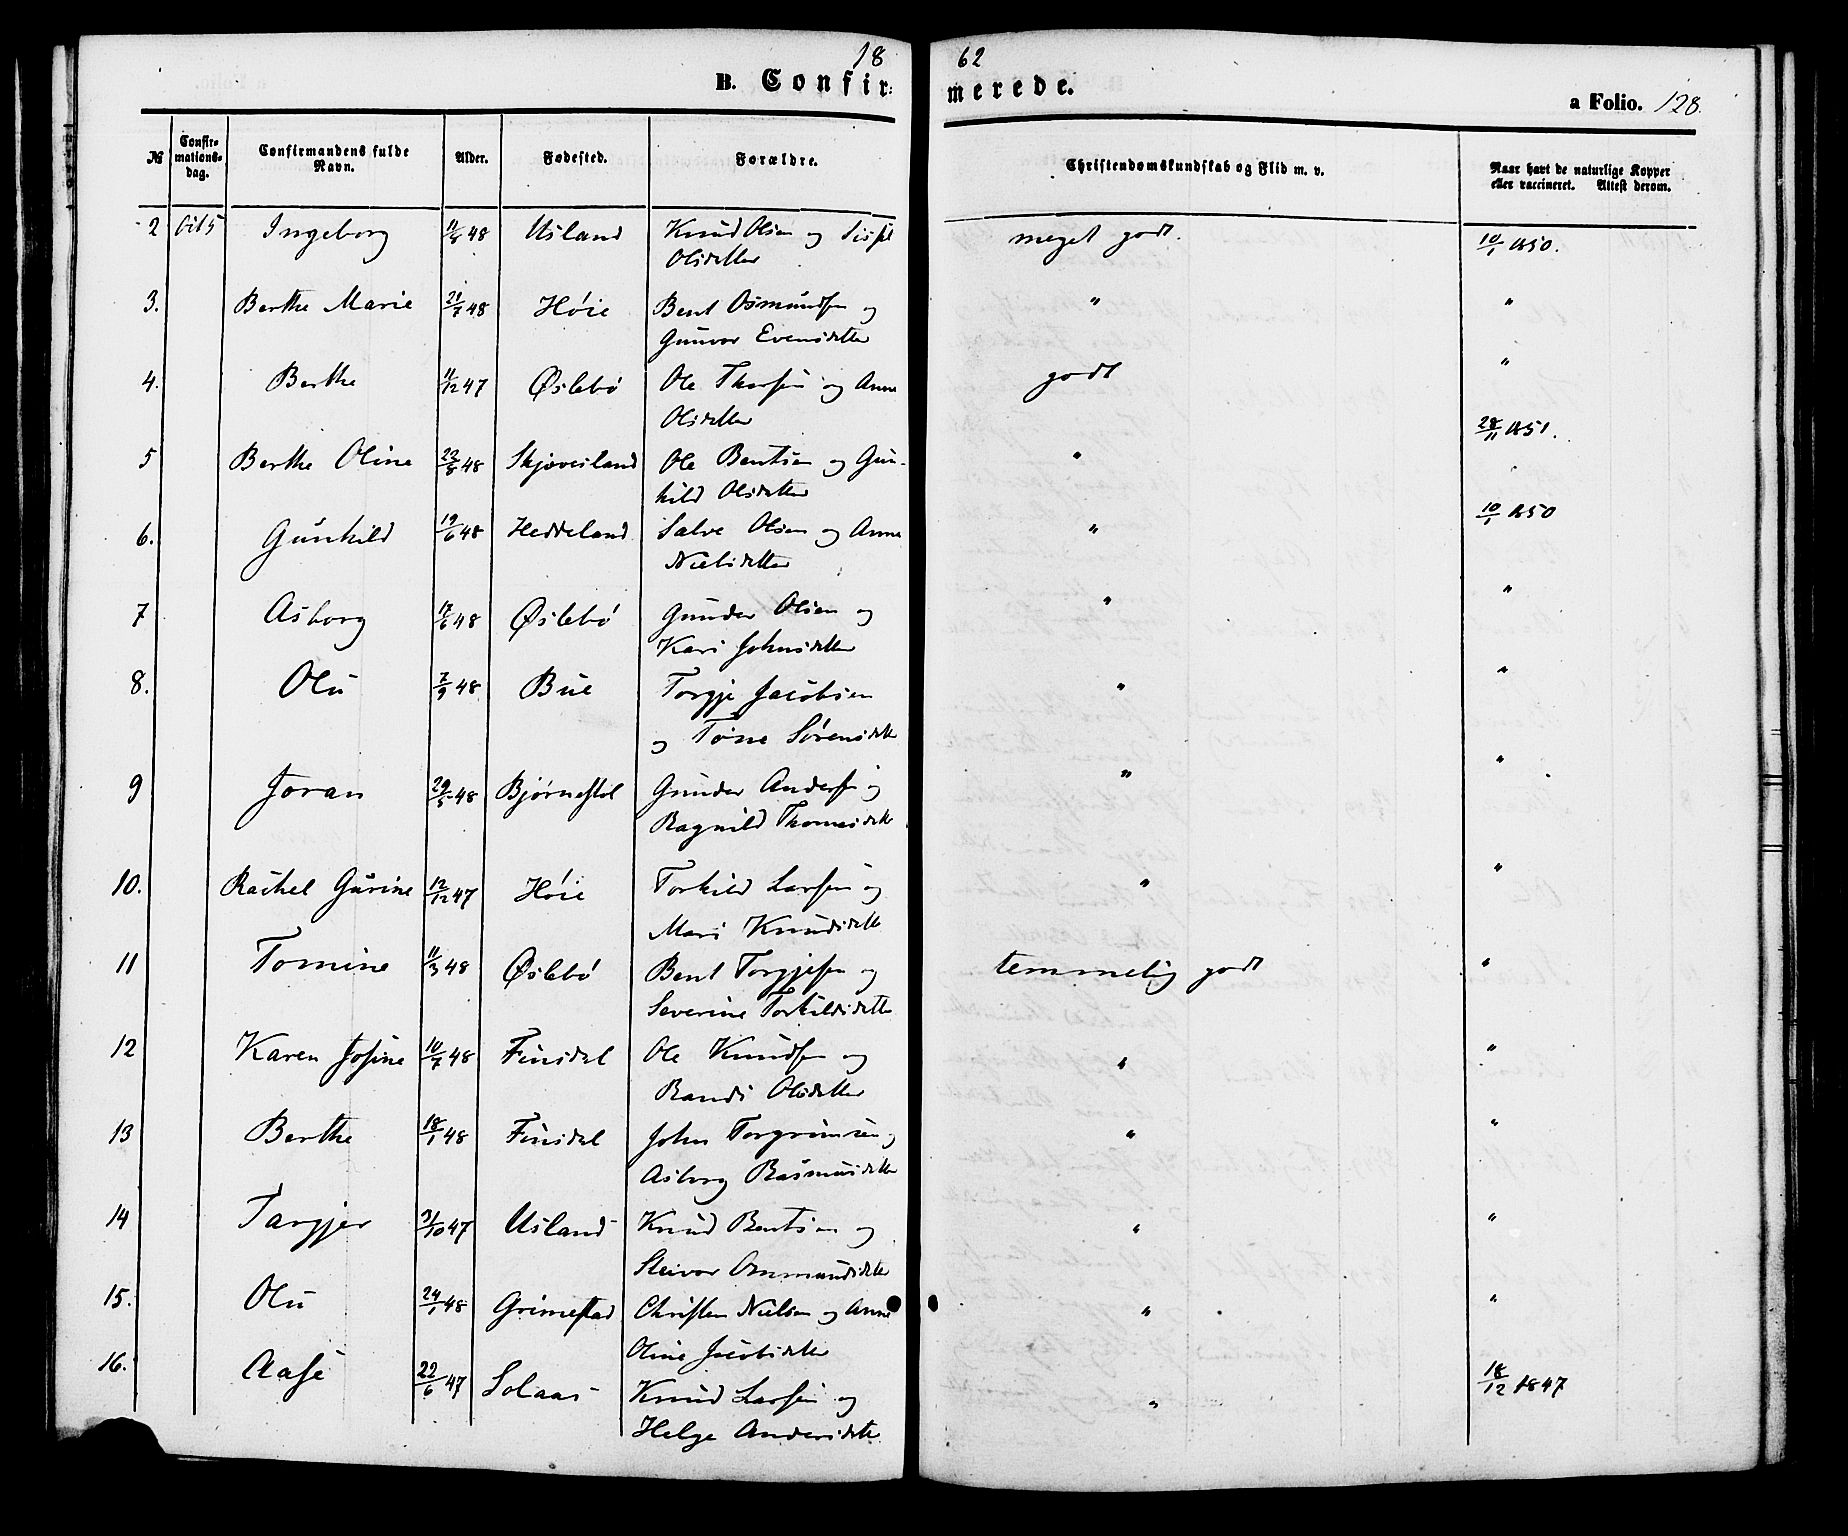 18 62
B. Confirmerede.
a Folio. 128.
№ Confirmationsdag. Confirmandens fulde Navn. Alder. Fødested. Forældre. Christendomskundskab og Flid m. v. Naar havt de naturlige Kopper eller vaccineret. Attest derom.
2 Oct 5 Ingeborg 48 Usland Knud Olsen og Sissel meget godt. 10/1 1850.
Olsdatter
3. Berthe Marie 21/7 48 Høie Bent Osmundsen og " "
Gunvor Evensdatter
4. Berthe 11/12 47 Øslebø Ole Thorsen og Anne godt "
Olsdatter
5 Berthe Oline 22/8 48 Skjævesland Ole Bentsen og Gun- " 28/11 1851.
hild Olsdatter
6. Gunhild 19/6 48 Heddeland Salve Olsen og Anne " 10/1 1850
Nielsdatter
7 Asborg 17/6 48 Øslebø Gunder Olsen og " "
Kari Johnsdatter
8. Olu 7/9 48 Bue Torgje Jacobsen " "
og Tone Sørensdatt
9 Joran 29/5 48 Bjørnestøl Gunder Andersen og " "
Ragnild Thomasdatt
10. Rachel Gurine 12/12 47 Høie Torkild Larsen og " "
Mari Knudsdatt
11 Tomine 11/3 48 Øslebø Bent Torgjesen og temmelig godt "
Severine Torkildsdatt
12 Karen Josine 10/7 48 Finsdal Ole Knudsen og " "
Randi Olsdatter
13 Berthe 18/1 48 Finsdal John Torgrimsen og " "
Asborg Rasmusdatter
14 Targjer 31/10 47 Usland Knud Bentsen og " "
Steivor Osmundsdatter
15. Olu 24/1 48 Grimestad Christen Nielsen og Anne " "
Oline Jacobsdatter
16. Aase 22/6 47 Solaas Knud Larsen og " 18/12 1847
Helge Andersdatt